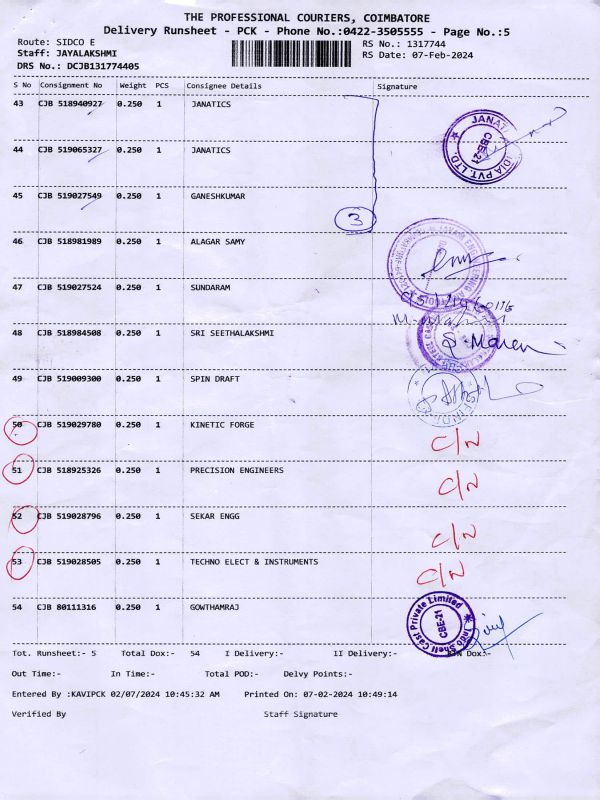 THE PROFESSIONAL COURIERS, COIMBATORE
Delivery Runsheet - PCK - Phone No.:0422-3505555 - Page No.:5
Route: SIDCO E
RS No.: 1317744
Staff: JAYALAKSHMI
RS Date: 07-Feb-2024
DRS No.: DCJB131774405
S No Consignment No Weight PCS Consignee Details Signature
43 CJB 518940927 0.250 1 JANATICS
44 CJB 519065327 0.250 1 JANATICS
45 CJB 519027549 0.250 1 GANESHKUMAR
3
46 CJB 518981989 0.250 1 ALAGAR SAMY
47 CJB 519027524 0.250 1 SUNDARAM
48 CJB 518984508 0.250 1 SRI SEETHALAKSHMI
49 CJB 519009300 0.250 1 SPIN DRAFT
50 CJB 519029780 0.250 1 KINETIC FORGE C/N
51 CJB 518925326 0.250 1 PRECISION ENGINEERS C/N
52 CJB 519028796 0.250 1 SEKAR ENGG C/N
53 CJB 519028505 0.250 1 TECHNO ELECT & INSTRUMENTS C/N
54 CJB 80111316 0.250 1 GOWTHAMRAJ
Inco Shell Cast Private Limited
CBE-21
Tot. Runsheet:- 5 Total Dox:- 54 I Delivery:- II Delivery:- Dox:-
Out Time:- In Time:- Total POD:- Delvy Points:-
Entered By :KAVIPCK 02/07/2024 10:45:32 AM Printed On: 07-02-2024 10:49:14
Verified By Staff Signature